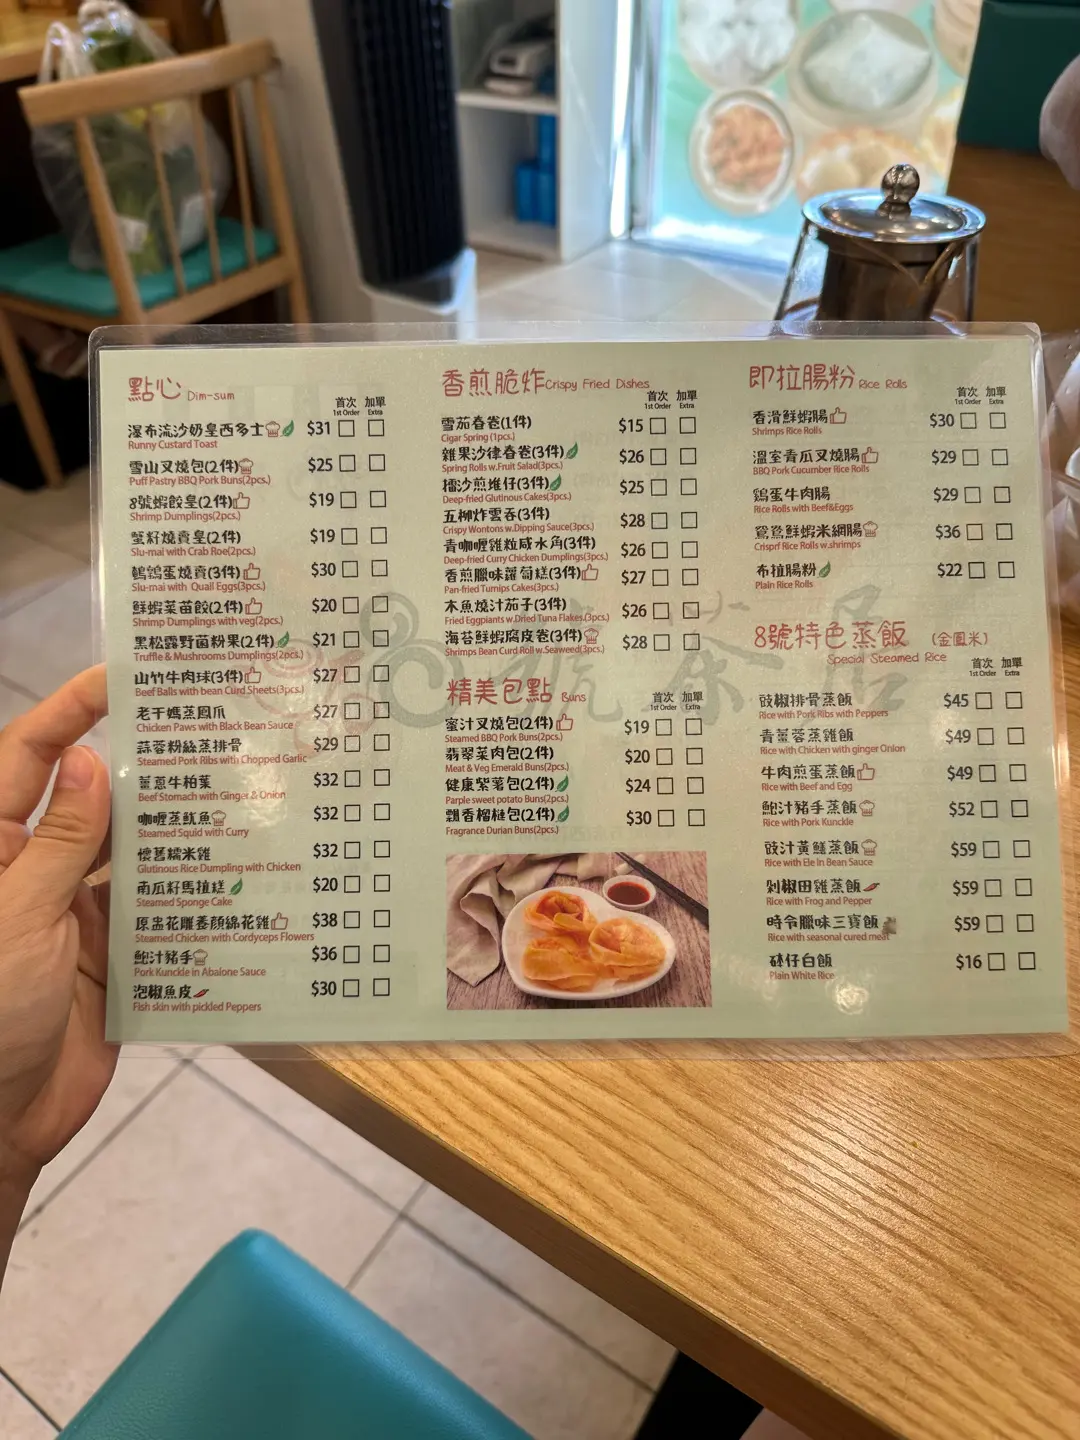 點心 Dim-sum
首次 加單
1st Order Extra
瀑布流沙奶皇西多士 $31
Runny Custard Toast
雪山叉燒包(2件) $25
Puff Pastry BBQ Pork Buns(2pcs.)
8號蝦餃皇(2件) $19
Shrimp Dumplings(2pcs.)
蟹籽燒賣皇(2件) $19
Slu-mai with Crab Roe(2pcs.)
鵪鶉蛋燒賣(3件) $30
Slu-mai with Quail Eggs(3pcs.)
鮮蝦菜苗餃(2件) $20
Shrimp Dumplings with veg(2pcs.)
黑松露野菌粉果(2件) $21
Truffle & Mushrooms Dumplings(2pcs.)
山竹牛肉球(3件) $27
Beef Balls with bean Curd Sheets(3pcs.)
老干媽蒸鳳爪 $27
Chicken Paws with Black Bean Sauce
蒜蓉粉絲蒸排骨 $29
Steamed Pork Ribs with Chopped Garlic
薑蔥牛柏葉 $32
Beef Stomach with Ginger & Onion
咖喱蒸魷魚 $32
Steamed Squid with Curry
懷舊糯米雞 $32
Glutinous Rice Dumpling with Chicken
南瓜籽馬拉糕 $20
Steamed Sponge Cake
原盅花雕養顏綿花雞 $38
Steamed Chicken with Cordyceps Flowers
鮑汁豬手 $36
Pork Kunckle in Abalone Sauce
泡椒魚皮 $30
Fish skin with pickled Peppers
香煎脆炸 Crispy Fried Dishes
首次 加單
1st Order Extra
雪茄春卷(1件) $15
Cigar Spring (1pcs.)
雜果沙律春卷(3件) $26
Spring Rolls w.Fruit Salad(3pcs.)
擂沙煎堆仔(3件) $25
Deep-fried Glutinous Cakes(3pcs.)
五柳炸雲吞(3件) $28
Crispy Wontons w.Dipping Sauce(3pcs.)
青咖喱雞粒咸水角(3件) $26
Deep-fried Curry Chicken Dumplings(3pcs.)
香煎臘味蘿蔔糕(3件) $27
Pan-fried Turnips Cakes(3pcs.)
木魚燒汁茄子(3件) $26
Fried Eggplants w.Dried Tuna Flakes.(3pcs.)
海苔鮮蝦腐皮卷(3件) $28
Shrimps Bean Curd Roll w.Seaweed(3pcs.)
精美包點 Buns
首次 加單
1st Order Extra
蜜汁叉燒包(2件) $19
Steamed BBQ Pork Buns(2pcs.)
翡翠菜肉包(2件) $20
Meat & Veg Emerald Buns(2pcs.)
健康紫薯包(2件) $24
Parple sweet potato Buns(2pcs.)
飄香榴槤包(2件) $30
Fragrance Durian Buns(2pcs.)
即拉腸粉 Rice Rolls
首次 加單
1st Order Extra
香滑鮮蝦腸 $30
Shrimps Rice Rolls
溫室青瓜叉燒腸 $29
BBQ Pork Cucumber Rice Rolls
鷄蛋牛肉腸 $29
Rice Rolls with Beef&Eggs
鴛鴦鮮蝦米網腸 $36
Crisprf Rice Rolls w.shrimps
布拉腸粉 $22
Plain Rice Rolls
8號特色蒸飯 (金鳳米)
Special Steamed Rice
首次 加單
1st Order Extra
豉椒排骨蒸飯 $45
Rice with Pork Ribs with Peppers
青薑蓉蒸雞飯 $49
Rice with Chicken with ginger Onion
牛肉煎蛋蒸飯 $49
Rice with Beef and Egg
鮑汁豬手蒸飯 $52
Rice with Pork Kunckle
豉汁黃鱔蒸飯 $59
Rice with Ele in Bean Sauce
剁椒田雞蒸飯 $59
Rice with Frog and Pepper
時令臘味三寶飯 $59
Rice with seasonal cured meat
砵仔白飯 $16
Plain White Rice
8號茶居